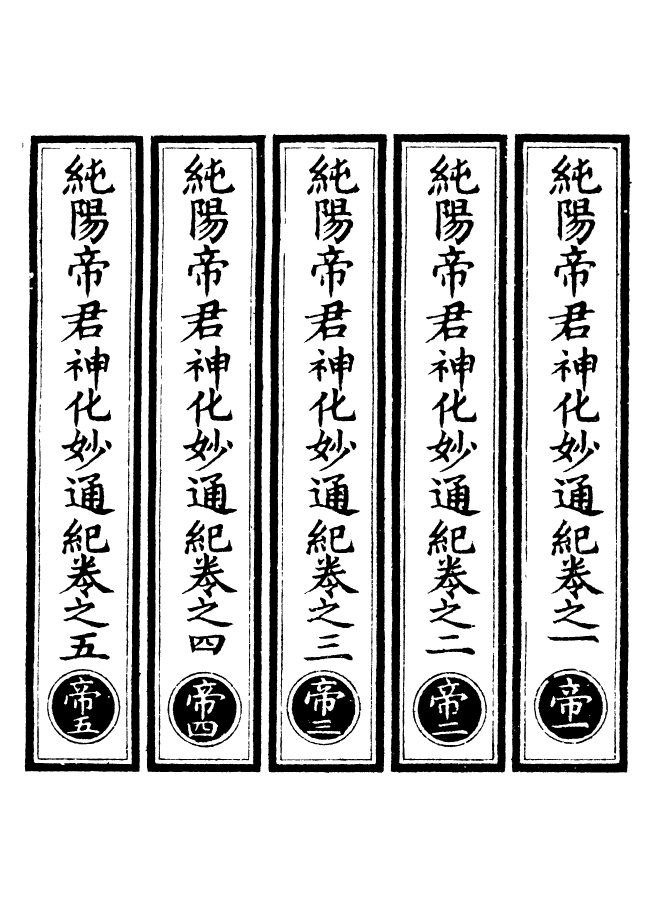 純陽帝君神化妙通紀卷之一
帝一
純陽帝君神化妙通紀卷之二
帝二
純陽帝君神化妙通紀卷之三
帝三
純陽帝君神化妙通紀卷之四
帝四
純陽帝君神化妙通紀卷之五
帝五